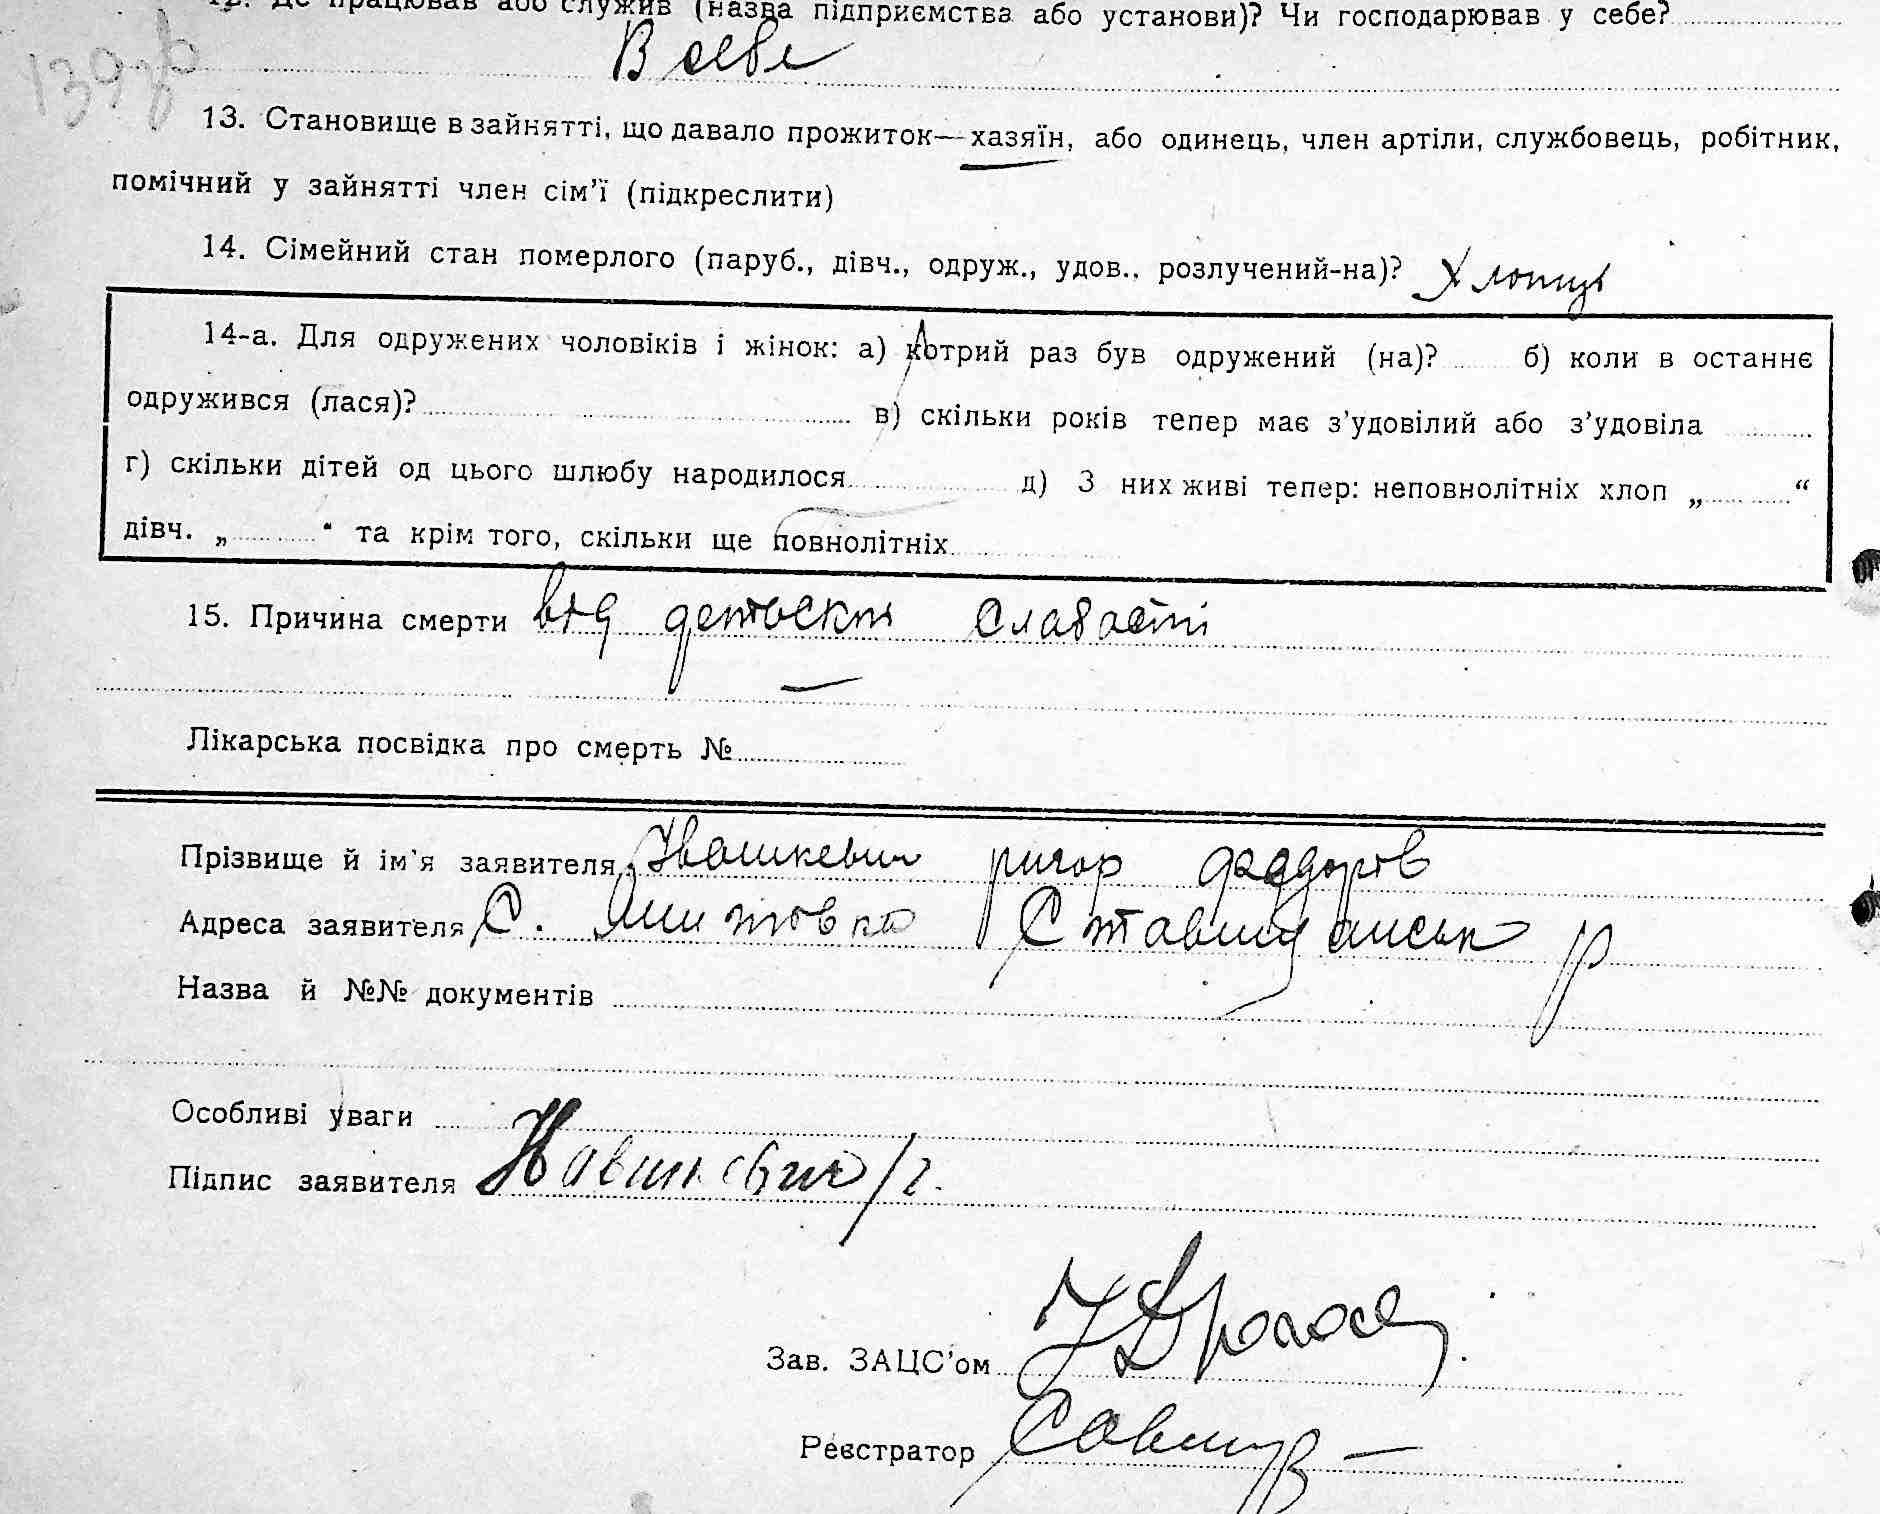 12. Де працював або служив (назва підприємства або установи)? Чи господарював у себе?
В себе
13. Становище в зайнятті, що давало прожиток—хазяїн, або одинець, член артіли, службовець, робітник,
помічний у зайнятті член сім'ї (підкреслити)
14. Сімейний стан померлого (паруб., дівч., одруж., удов., розлучений-на)? Хлопиць
14-а. Для одружених чоловіків і жінок: а) котрий раз був одружений (на)? б) коли в останнє
одружився (лася)? в) скільки років тепер має з'удовілий або з'удовіла
г) скільки дітей од цього шлюбу народилося д) З них живі тепер: неповнолітніх хлоп „ “
дівч. „ “ та крім того, скільки ще повнолітніх
15. Причина смерти від детьскої слабасті
Лікарська посвідка про смерть №
Прізвище й ім'я заявителя Ивашкевич ригор
Адреса заявителя С. Ставищанськ р
Назва й №№ документів
Особливі уваги
Підпис заявителя
Зав. ЗАЦС'ом
Реєстратор